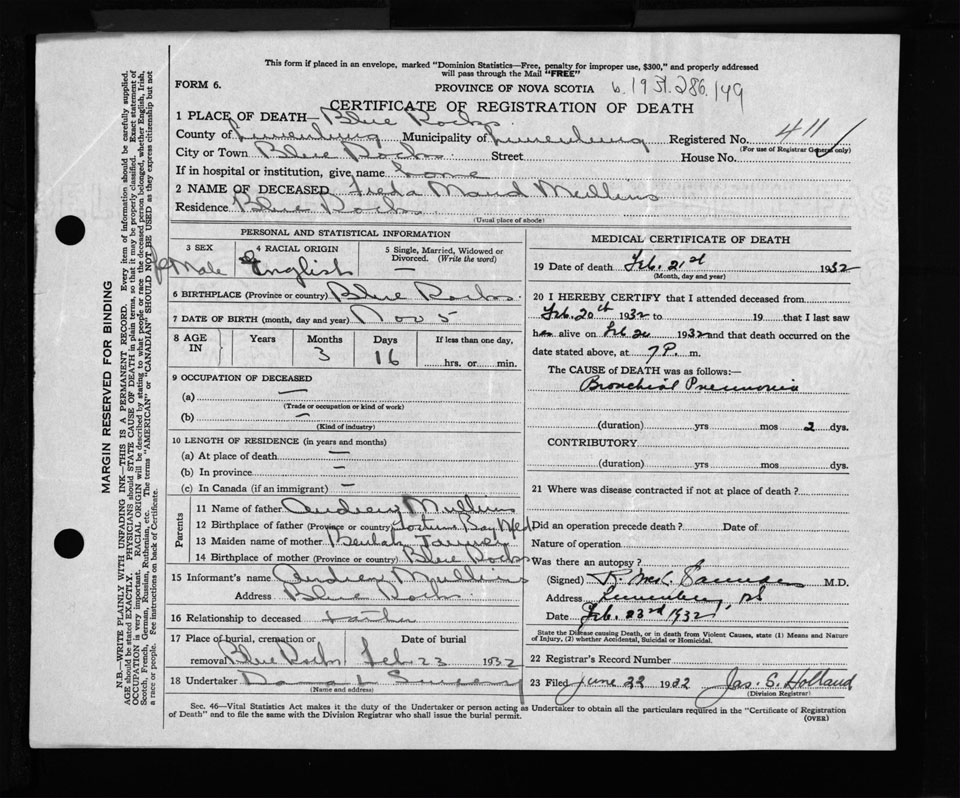 This form if placed in an envelope, marked "Dominion Statistics—Free, penalty for improper use, $300," and properly addressed
will pass through the Mail "FREE"
FORM 6.
PROVINCE OF NOVA SCOTIA 6.1931.286.149
CERTIFICATE OF REGISTRATION OF DEATH
1 PLACE OF DEATH— Blue Rocks
County of Lunenburg Municipality of Lunenburg Registered No. 411
(For use of Registrar General only)
City or Town Blue Rocks. Street House No.
If in hospital or institution, give name
2 NAME OF DECEASED Freda Maud Mullins
Residence Blue Rocks
(Usual place of abode)
PERSONAL AND STATISTICAL INFORMATION
3 SEX
feMale
4 RACIAL ORIGIN
English
5 Single, Married, Widowed or
Divorced. (Write the word)
—
6 BIRTHPLACE (Province or country) Blue Rocks.
7 DATE OF BIRTH (month, day and year) Nov 5
8 AGE
IN
Years
Months
3
Days
16
If less than one day,
hrs. or min.
9 OCCUPATION OF DECEASED
(a) —
(Trade or occupation or kind of work)
(b) —
(Kind of industry)
10 LENGTH OF RESIDENCE (in years and months)
(a) At place of death —
(b) In province —
(c) In Canada (if an immigrant) —
Parents
11 Name of father Audrey Mullins
12 Birthplace of father (Province or country) Fortune Bay Nfd
13 Maiden name of mother Beulah
14 Birthplace of mother (Province or country) Blue Rocks
15 Informant's name Audrey Mullins
Address Blue Rocks.
16 Relationship to deceased Father
17 Place of burial, cremation or Date of burial
removal Blue Rocks Feb 23 1932
18 Undertaker
(Name and address)
MEDICAL CERTIFICATE OF DEATH
19 Date of death Feb. 21st 1932
(Month, day and year)
20 I HEREBY CERTIFY that I attended deceased from
Feb. 20th 1932 to 19 that I last saw
alive on Feb 20 1932 and that death occurred on the
date stated above, at 7 P. m.
The CAUSE of DEATH was as follows:—
Bronchial Pneumonia
(duration) yrs mos 2 dys.
CONTRIBUTORY
(duration) yrs mos dys.
21 Where was disease contracted if not at place of death?
Did an operation precede death? Date of
Nature of operation
Was there an autopsy?
(Signed) R. McC. M.D.
Address Lunenburg, NS
Date Feb. 23rd 1932
State the Disease causing Death, or in death from Violent Causes, state (1) Means and Nature
of Injury, (2) whether Accidental, Suicidal or Homicidal.
22 Registrar's Record Number
23 Filed June 22 1932 Jas. S. Holland
(Division Registrar)
Sec. 46—Vital Statistics Act makes it the duty of the Undertaker or person acting as Undertaker to obtain all the particulars required in the "Certificate of Registration
of Death" and to file the same with the Division Registrar who shall issue the burial permit. (OVER)
MARGIN RESERVED FOR BINDING
N.B.—WRITE PLAINLY WITH UNFADING INK—THIS IS A PERMANENT RECORD. Every item of information should be carefully supplied.
AGE should be stated EXACTLY. PHYSICIANS should STATE CAUSE OF DEATH in plain terms, so that it may be properly classified. Exact statement of
OCCUPATION is very important. RACIAL ORIGIN will be described by stating to what people or race the deceased person belonged, whether English, Irish,
Scotch, French, German, Russian, Ruthenian, etc. The terms "AMERICAN" or "CANADIAN" SHOULD NOT BE USED as they express citizenship but not
a race or people. See instructions on back of Certificate.